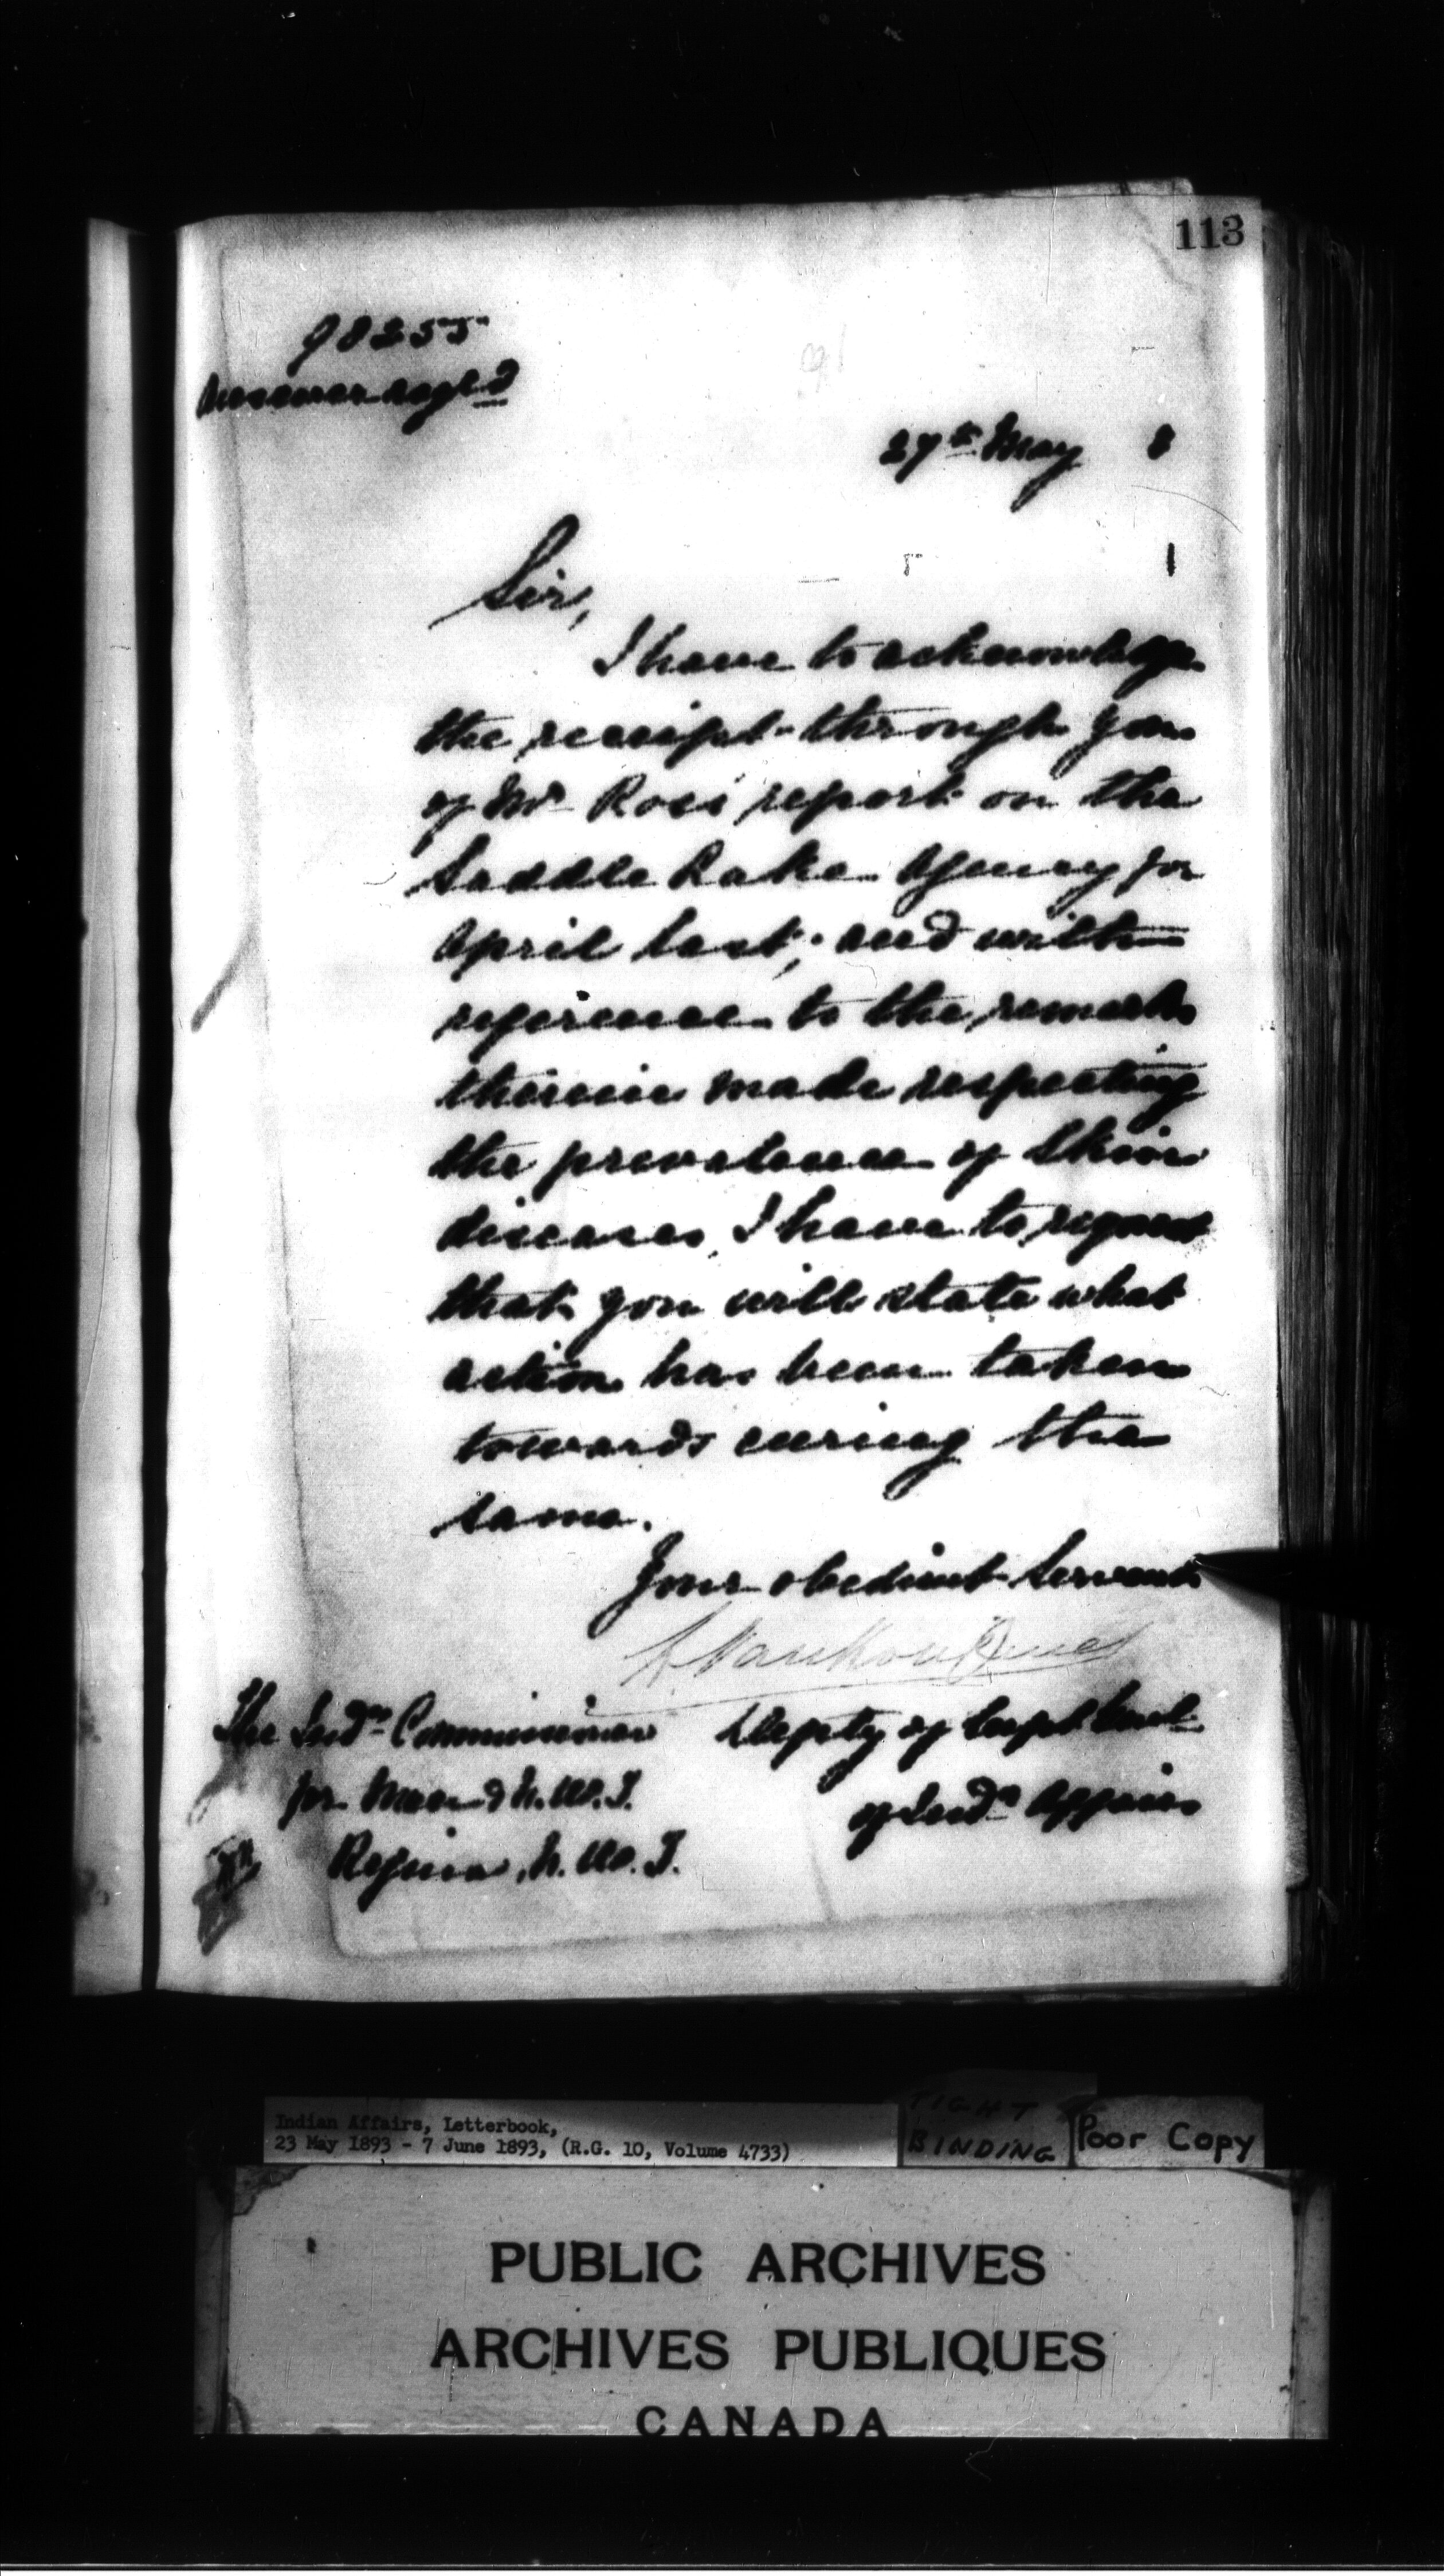 113
98255
27th May
Sir,
I have to acknowledge
the receipt through you
of Mr Ross' report on the
Saddle Lake Agency for
April last; and with
reference to the remarks
therein made respecting
the prevalence of skin
diseases, I have to request
that you will state what
action has been taken
towards curing the
same.
Your obedient Servant
L. Vankoughnet
The Indn Commissioner
Deputy of Supt Genl
for Man. & N.W.T.
of Indn Affairs
Regina, N.W.T.
Indian Affairs, Letterbook,
23 May 1893 - 7 June 1893, (R.G. 10, Volume 4733)
TIGHT
BINDING
Poor Copy
PUBLIC ARCHIVES
ARCHIVES PUBLIQUES
CANADA